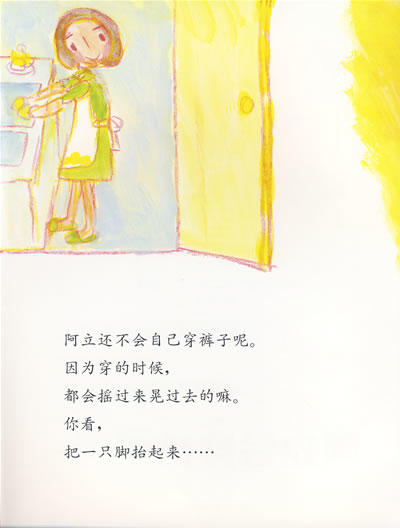 阿立还不会自己穿裤子呢。
因为穿的时候，
都会摇过来晃过去的嘛。
你看，
把一只脚抬起来……